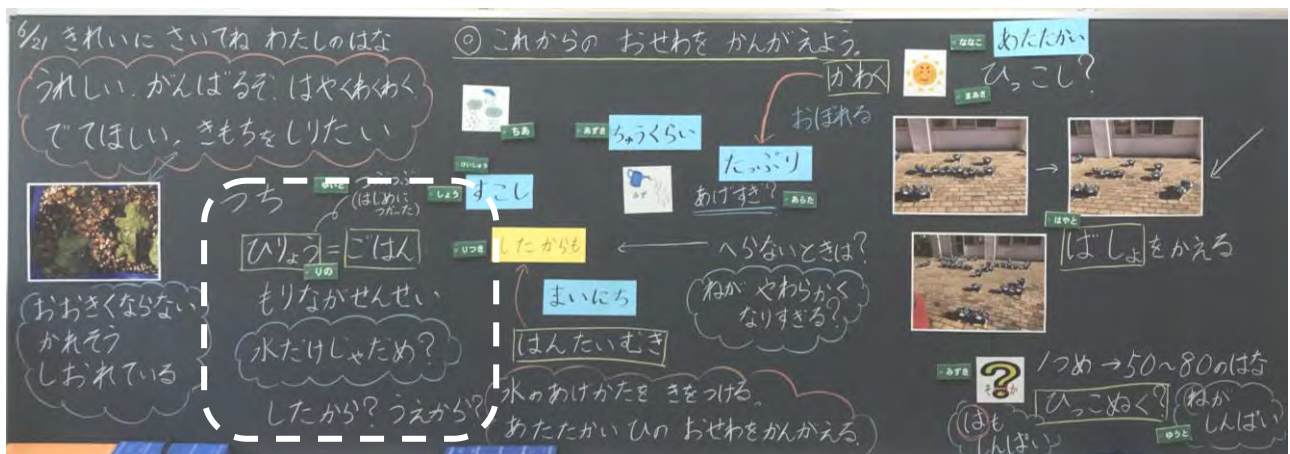 6/21 きれいに さいてね わたしのはな
うれしい。がんばるぞ。はやくわくわく
でてほしい。きもちをしりたい
おおきくならない
かれそう
しおれている
つち
ゆいと
つぶつぶ
(はじめに
つかった)
ひりょう=ごはん
りの
もりながせんせい
水だけじゃだめ?
したから?うえから?
◎ これからの おせわを かんがえよう。
ちあ
あずき
ちゅうくらい
けいしょう
しょう
すこし
みず
かわく
おぼれる
たっぷり
あげすぎ?
あらた
りつき
したからも
へらないときは?
まいにち
ねが やわらかく
なりすぎる?
はんたいむき
水のあげかたを きをつける。
あたたかい ひの おせわをかんがえる。
ななこ
あたたかい
まあさ
ひっこし?
はやと
ばしょをかえる
みずき
?
1つめ→50~80のはな
ひっこぬく?
ゆうと
はも
しんぱい
ねが
しんぱい